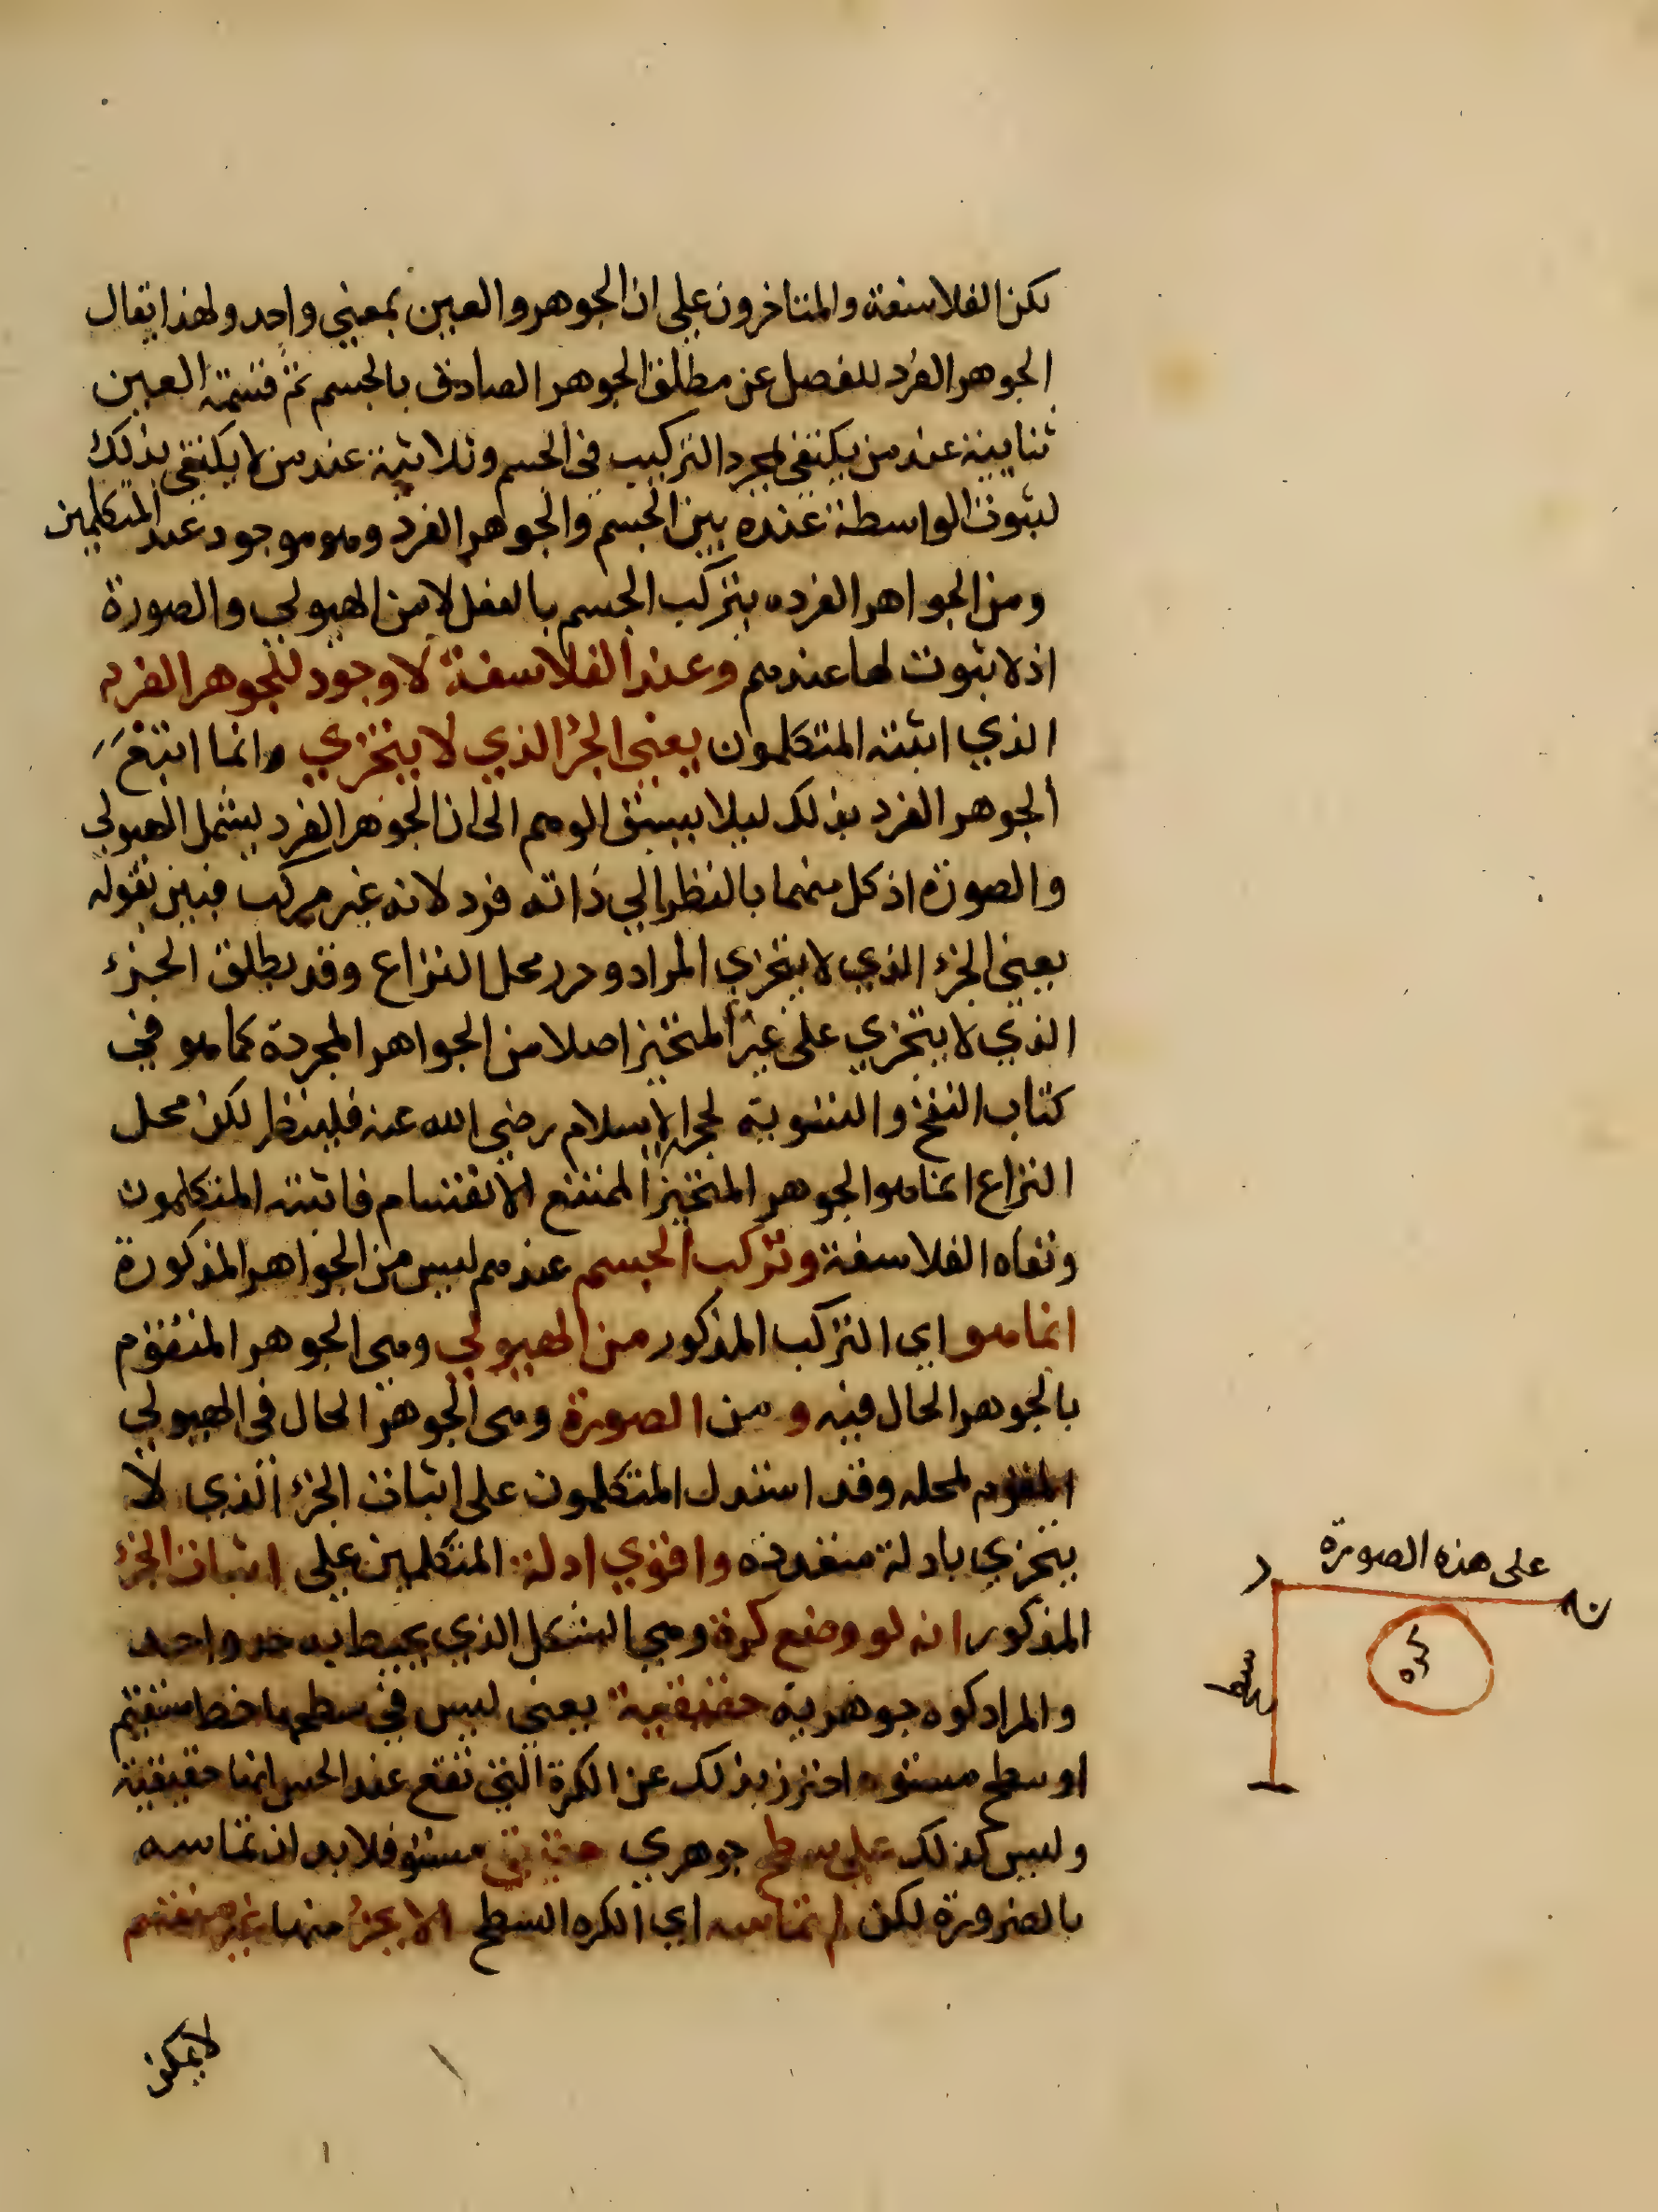 لكن الفلاسفة والمتاخرون علي ان الجوهر والعين بمعني واحد ولهذا يقال
الجوهر الفرد للفصل عن مطلق الجوهر الصادق بالجسم ثم قسمة العين
ثنايية عند من يكتفى بمجرد التركيب فى الجسم وثلاثية عند من لا يكتفى بذلك
لثبوت الواسطة عنده بين الجسم والجوهر الفرد وهو موجود عند المتكلمين
ومن الجواهر الفرده يتركب الجسم بالفعل لا من الهيولي والصورة
اذ لا ثبوت لها عندهم وعند الفلاسفة لا وجود للجوهر الفرد
الذي اثبته المتكلمون يعني الجزء الذي لا يتجزي وانما اتبع
الجوهر الفرد بذلك ليلا يسبق الوهم الى ان الجوهر الفرد يشمل الهيولي
والصورة اذ كل منهما بالنظر الي ذاته فرد لانه غير مركب فبين بقوله
يعني الجزء الذي لا يتجزي المراد وحرر محل النزاع وقد يطلق الجزء
الذي لا يتجزي على غير المتحيز اصلا من الجواهر المجردة كما هو في
كتاب النفخ والتسوية لحجة الاسلام رضي الله عنه فلينظر لكن محل
النزاع انما هو الجوهر المتحيز الممتنع الانقسام فاثبته المتكلمون
ونفاه الفلاسفة وتركب الجسم عندهم ليس من الجواهر المذكورة
انما هو اي التركب المذكور من الهيولي وهى الجوهر المتقوم
بالجوهر الحال فيه و من الصورة وهى الجوهر الحال فى الهيولي
المقوم لمحله وقد استدل المتكلمون على اثبات الجزء الذي لا
يتجزي بادلة متعددة واقوي ادلة المتكلمين علي اثبات الجزء
المذكور انه لو وضع كرة وهي الشكل الذي يحيط به حد واحد
والمراد كره جوهرية حقيقية يعني ليس في سطحها خط مستقيم
او سطح مستو احترز بذلك عن الكرة التي تقع عند الحس انها حقيقية
وليس كذلك علي سطح جوهري حقيقي مستو فلا بد ان تماسه
بالضرورة لكن لم تماسه اي الكره السطح الا بجزء منها غير منقسم
لا يمكن
على هذه الصورة
كره
سطح